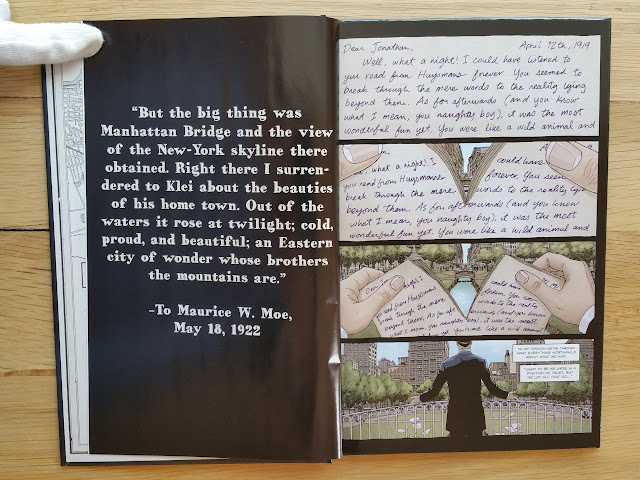 “But the big thing was
Manhattan Bridge and the view
of the New-York skyline there
obtained. Right there I surren-
dered to Klei about the beauties
of his home town. Out of the
waters it rose at twilight; cold,
proud, and beautiful; an Eastern
city of wonder whose brothers
the mountains are.”
-To Maurice W. Moe,
May 18, 1922
Dear Jonathan, April 12th, 1919
Well, what a night! I could have listened to
you read from Huysmans forever. You seemed to
break through the mere words to the reality lying
beyond them. As for afterwards (and you know
what I mean, you naughty boy), it was the most
wonderful fun yet. You were like a wild animal and
what a night! I could have
you read from Huysmans forever. You seemed
break through the mere words to the reality lying
beyond them. As for afterwards (and you know
what I mean, you naughty boy), it was the most
wonderful fun yet. You were like a wild animal and
Dear
read from Huysmans
through the mere
beyond them. As for
what I mean, you
could have
words to the reality
it was the most
like a wild animal